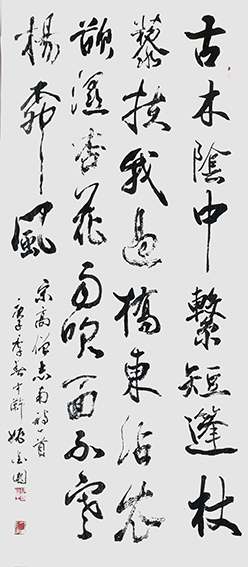 古木陰中繫短篷杖
藜扶我過橋東沾衣
欲濕杏花雨吹面不寒
楊柳風
宋高僧志南詩一首
庚子季春